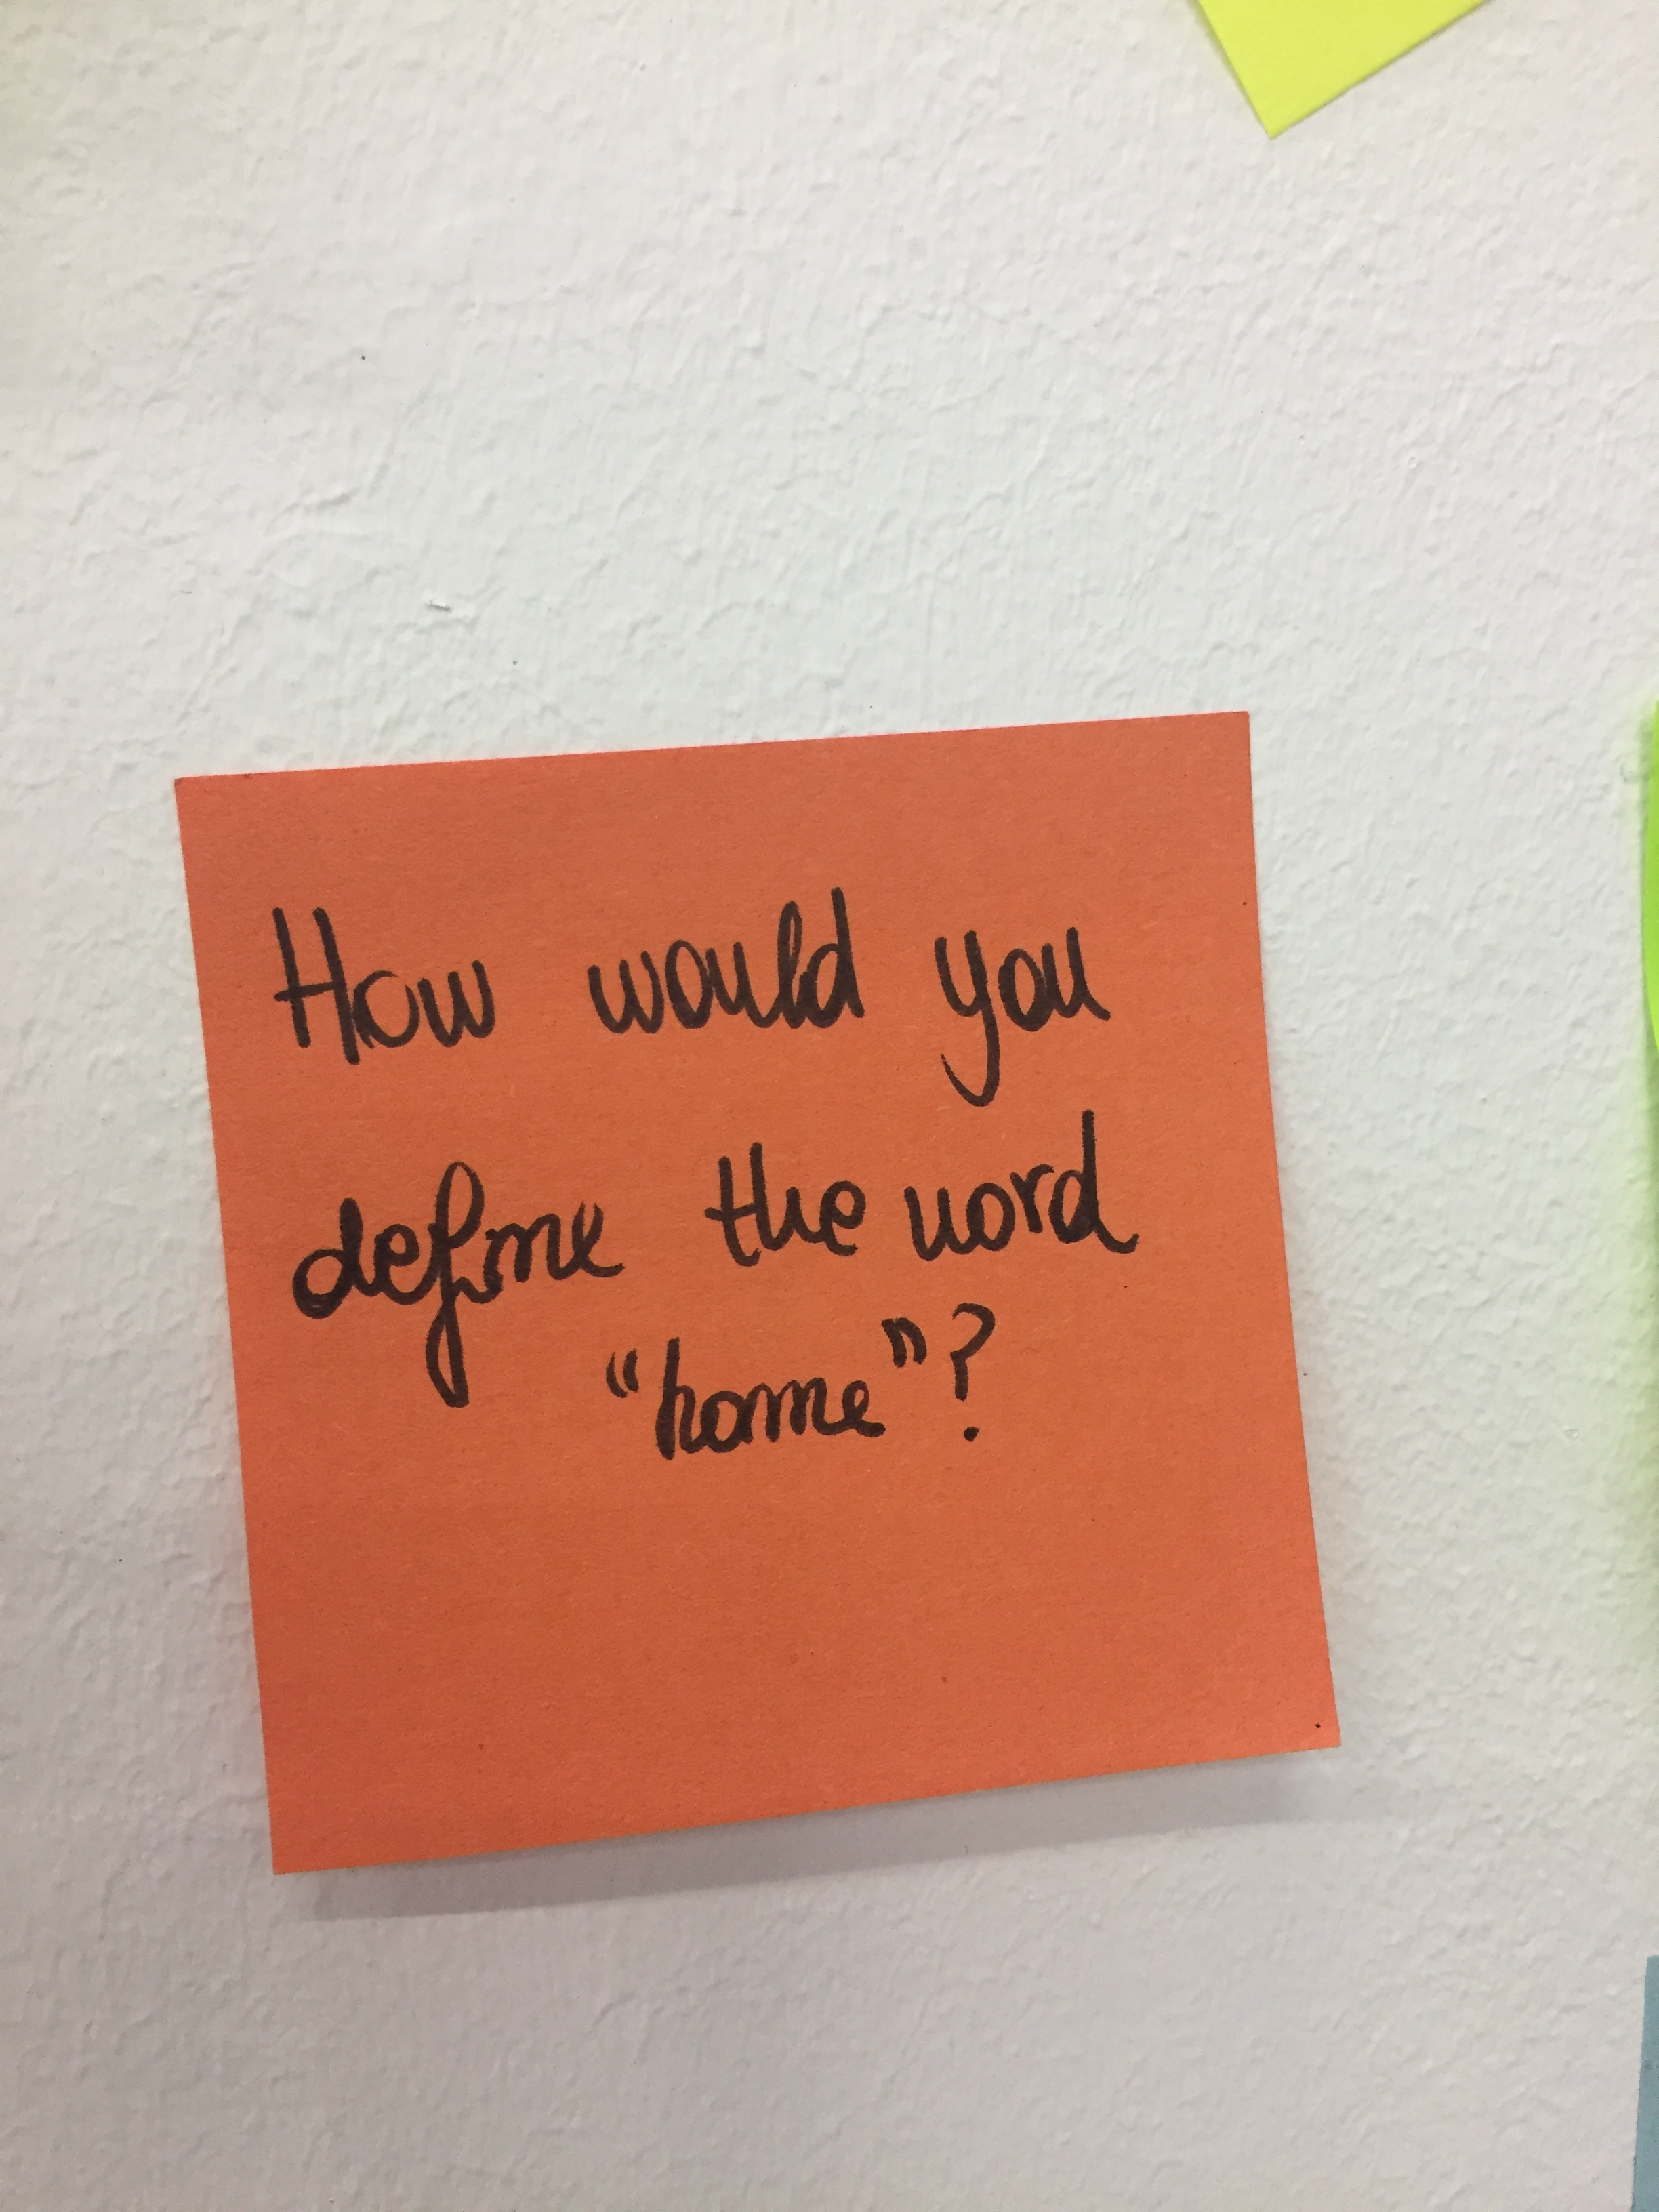 How would you
define the word
“home”?